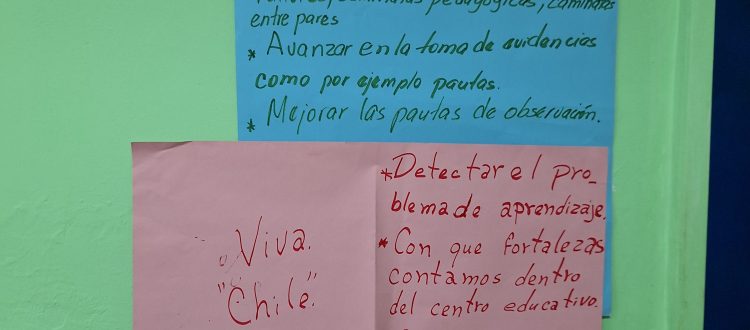 pedagógicas, caminatas
entre pares
* Avanzar en la toma de evidencias
como por ejemplo pautas.
* Mejorar las pautas de observación.
* Detectar el pro_
blema de aprendizaje.
* Con que fortalezas
contamos dentro
del centro educativo.
Viva.
"Chile".